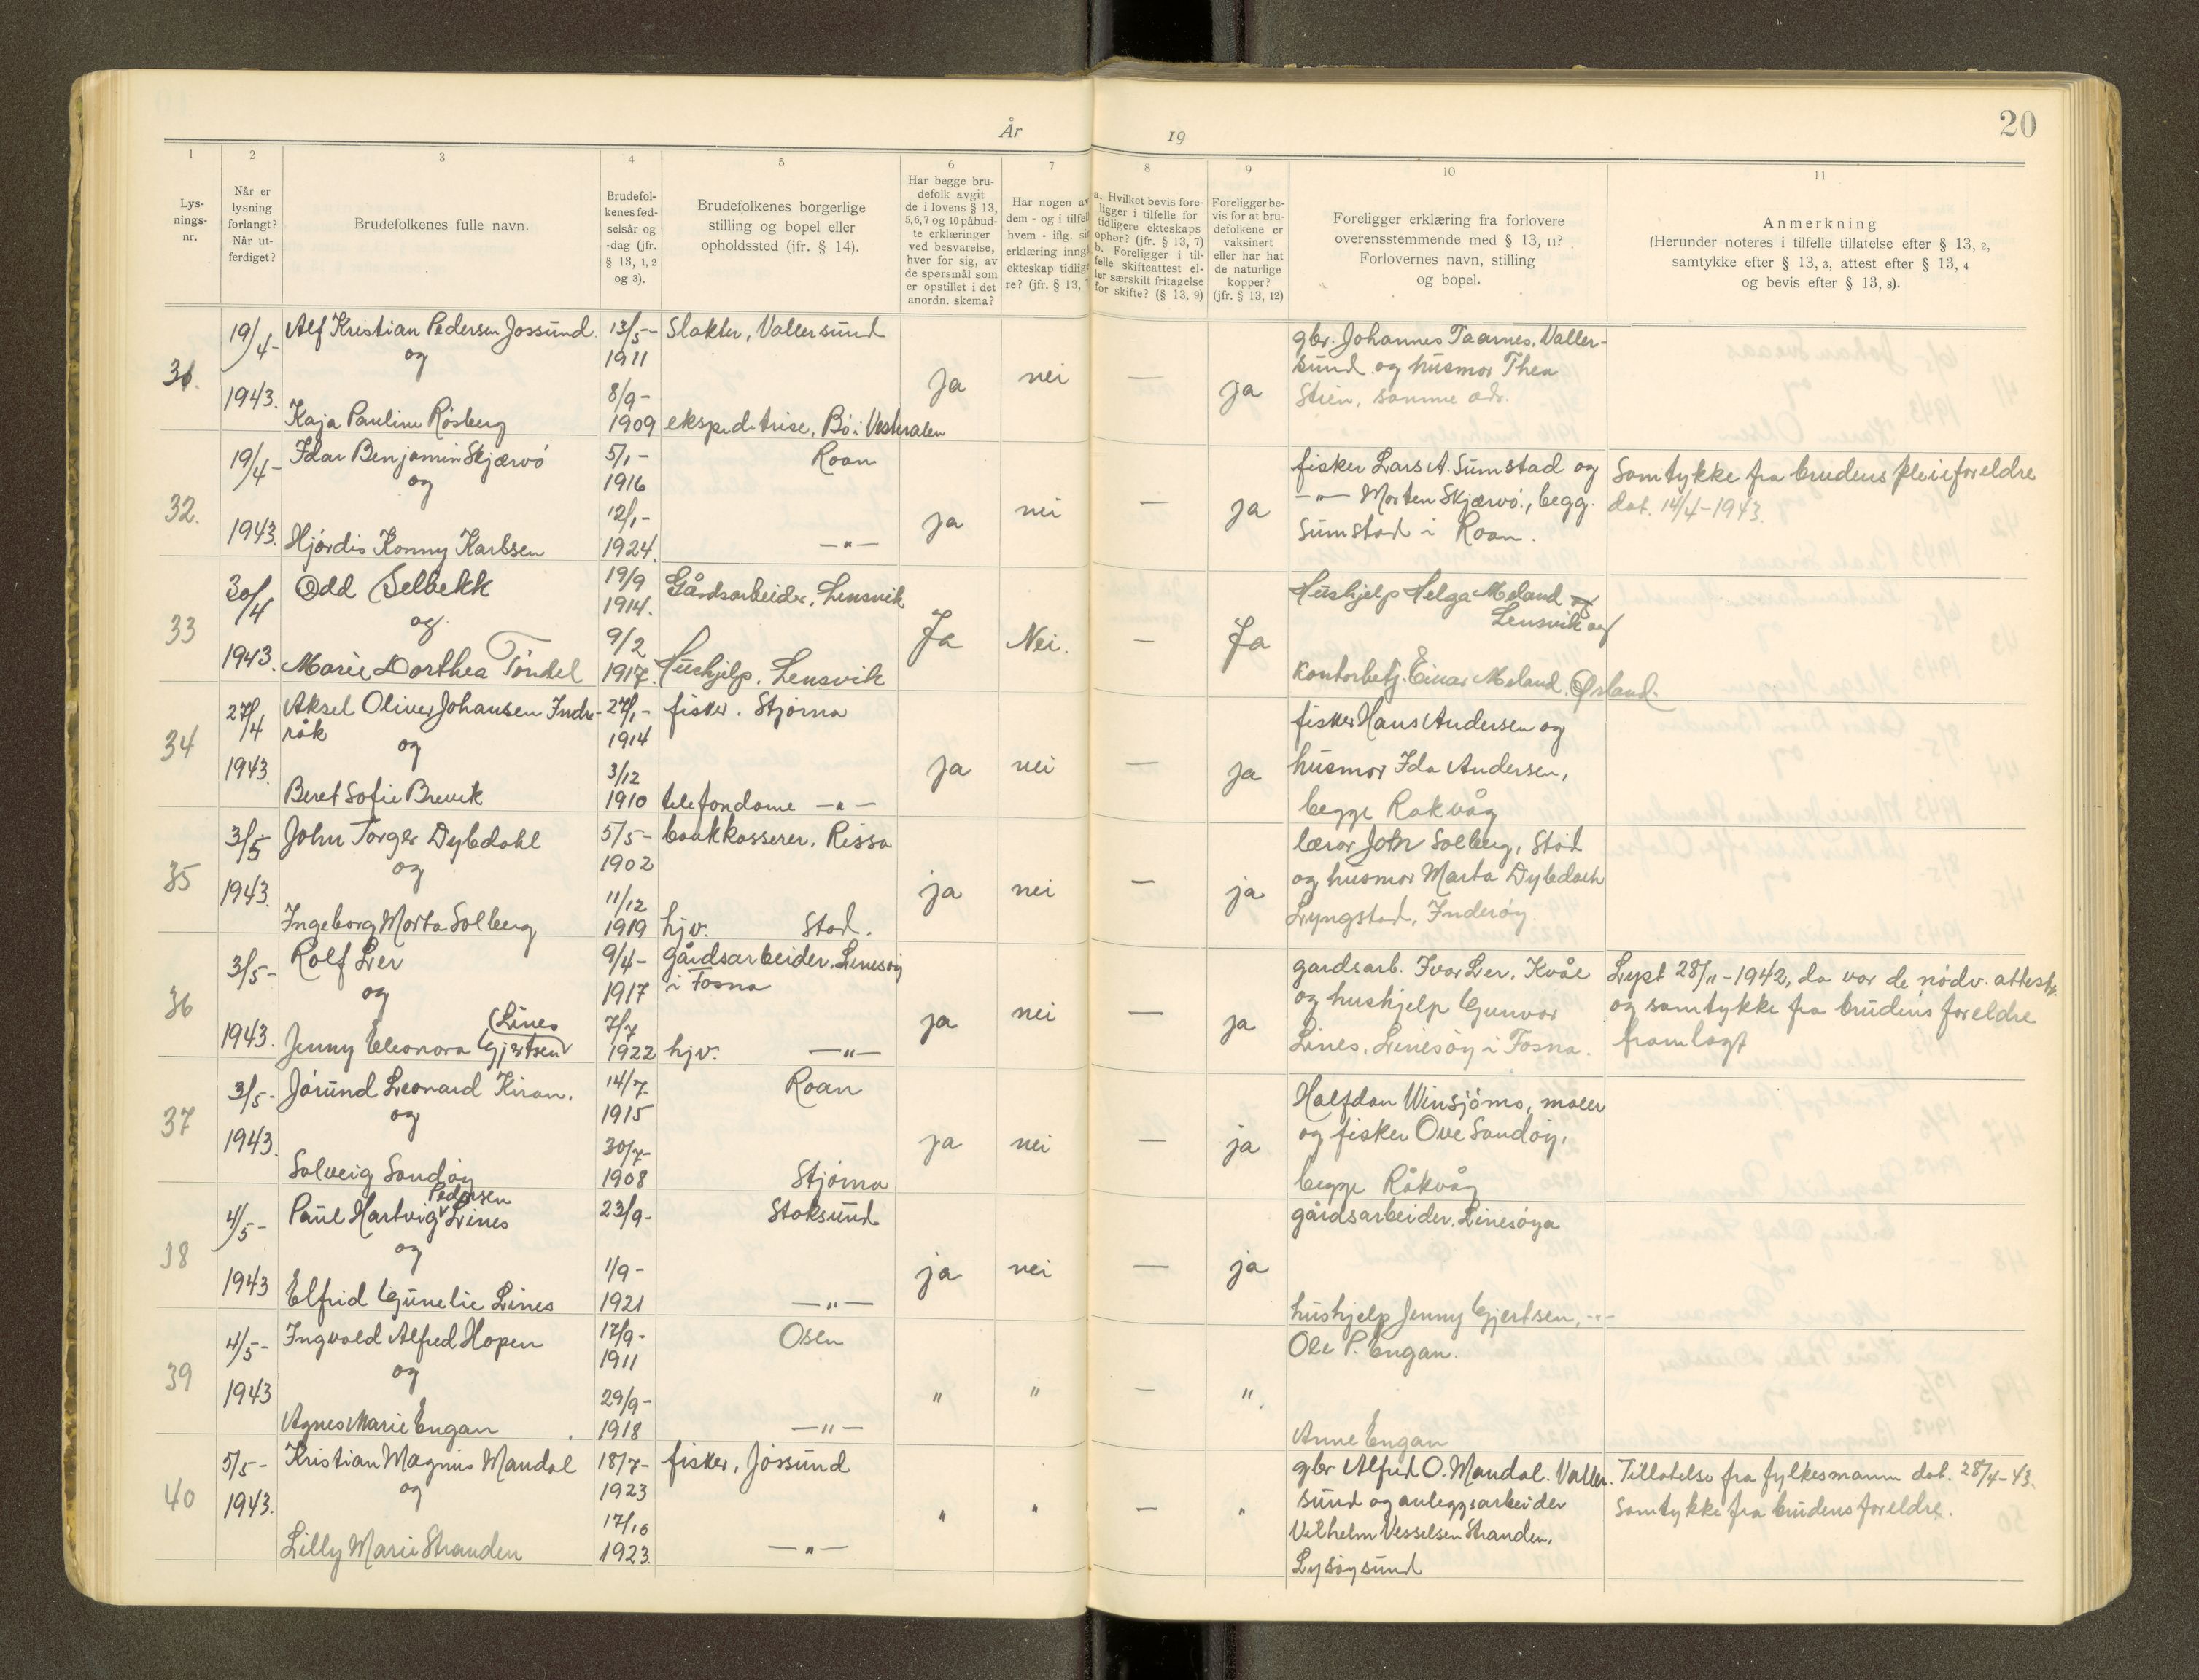 20
År 19
1
Lys-
nings-
nr.
2
Når er
lysning
forlangt?
Når ut-
ferdiget?
3
Brudefolkenes fulle navn.
4
Brudefol-
kenes fød-
selsår og
-dag (jfr.
§ 13, 1, 2
og 3).
5
Brudefolkenes borgerlige
stilling og bopel eller
opholdssted (ifr. § 14).
6
Har begge bru-
defolk avgit
de i lovens § 13,
5,6,7 og 10 påbud-
te erklæringer
ved besvarelse,
hver for sig, av
de spørsmål som
er opstillet i det
anordn. skema?
7
Har nogen av
dem - og i tilfel
hvem - iflg. si
erklæring inng
ekteskap tidlig
re? (jfr. § 13,
8
a. Hvilket bevis fore-
ligger i tilfelle for
tidligere ekteskaps
ophør? (jfr. § 13, 7)
b. Foreligger i til-
felle skifteattest el-
ler særskilt fritagelse
for skifte? (§ 13, 9)
9
Foreligger be-
vis for at bru-
defolkene er
vaksinert
eller har hat
de naturlige
kopper?
(jfr. § 13, 12)
10
Foreligger erklæring fra forlovere
overensstemmende med § 13, 11?
Forlovernes navn, stilling
og bopel.
11
Anmerkning
(Herunder noteres i tilfelle tillatelse efter § 13, 2,
samtykke efter § 13, 3, attest efter § 13, 4
og bevis efter § 13, 8).
31.
19/4-
1943.
Alf Kristian Pedersen Jossund
og
Kaja Pauline Rösberg
13/5-
1911
8/9-
1909
Slakter, Vallersund
ekspeditrise, Bö i Vesteralen
ja
nei
—
ja
gbr. Johannes Taarnes, Valler-
sund og husmor Thea
Stien, samme adr.
32.
19/4-
1943.
Idar Benjamin Skjærvö
og
Hjördis Konny Karlsen
5/1-
1916
12/1-
1924.
Roan
—"—
ja
nei
—
ja
fisker Lars A. Sumstad og
—"— Morten Skjærvö, begg.
Sumstad i Roan.
Samtykke fra brudens pleieforeldre
dat. 14/4-1943.
33
30/4
1943.
Odd Selbekk
og
Marie Dorthea Töndel
19/9
1914.
9/2
1917.
Gårdsarbeider, Lensvik
Hushjelp. Lensvik
Ja
Nei.
—
Ja
Hushjelp Helga Meland og
Lensvik og
Kontorbetj. Einar Meland. Ørland.
34
27/4
1943.
Aksel Oliver Johansen Indre-
råk
og
Beret Sofie Brevik
27/1-
1914
3/12
1910
fisker. Stjörna
telefondame —"—
ja
nei
—
ja
fisker Hans Andersen og
husmor Ida Andersen,
begge Rakvåg
35
3/5
1943.
John Torger Dybdahl
og
Ingeborg Marta Solberg
5/5-
1902
11/12
1919
bankkasserer, Rissa
hjv. Stod.
ja
nei
—
ja
lærer John Solberg, Stod
og husmor Marta Dybdahl
Lyngstad, Inderöy.
36
3/5-
1943.
Rolf Ler
og
(Lines
Jenny Eleonora Gjertsen
9/4-
1917
7/7
1922
gårdsarbeider. Linesöy
i Fosna
hjv. —"—
ja
nei
—
ja
gardsarb. Ivar Ler, Kvåe
og hushjelp Gunvor
Lines, Linesöy i Fosna.
Lyst 28/11-1942, da var de nödv. attest.
og samtykke fra brudens foreldre
framlagt
37
3/5-
1943.
Jörund Leonard Kiran.
og
Solveig Sandöy
14/7-
1915
30/7-
1908
Roan
Stjörna
ja
nei
—
ja
Halfdan Winsjömo, maler
og fisker Ove Sandöy,
begge Råkvåg
38
4/5-
1943
Pedersen
Paul Hartvig Lines
og
Elfrid Gunelie Lines
23/9-
1/9-
1921
Stoksund
—"—
ja
nei
—
ja
gårdsarbeider, Linesöya
hushjelp Jenny Gjertsen, -"-
39
4/5-
1943
Ingvald Alfred Hopen
og
Agnes Marie Engan
17/9-
1911
29/9-
1918
Osen
—"—
"
"
—
"
Ole P. Engan.
Anne Engan
40
5/5-
1943.
Kristian Magnus Mandal
og
Lilly Marie Stranden
18/7-
1923
17/10
1923.
fisker, Jössund
—"—
"
"
—
"
gbr Alfred O. Mandal. Valler.
sund og anleggsarbeider
Vilhelm Vesselsen Stranden,
Lysöysund
Tillatelse fra fylkesmann dat. 28/4-43.
Samtykke fra brudens foreldre.